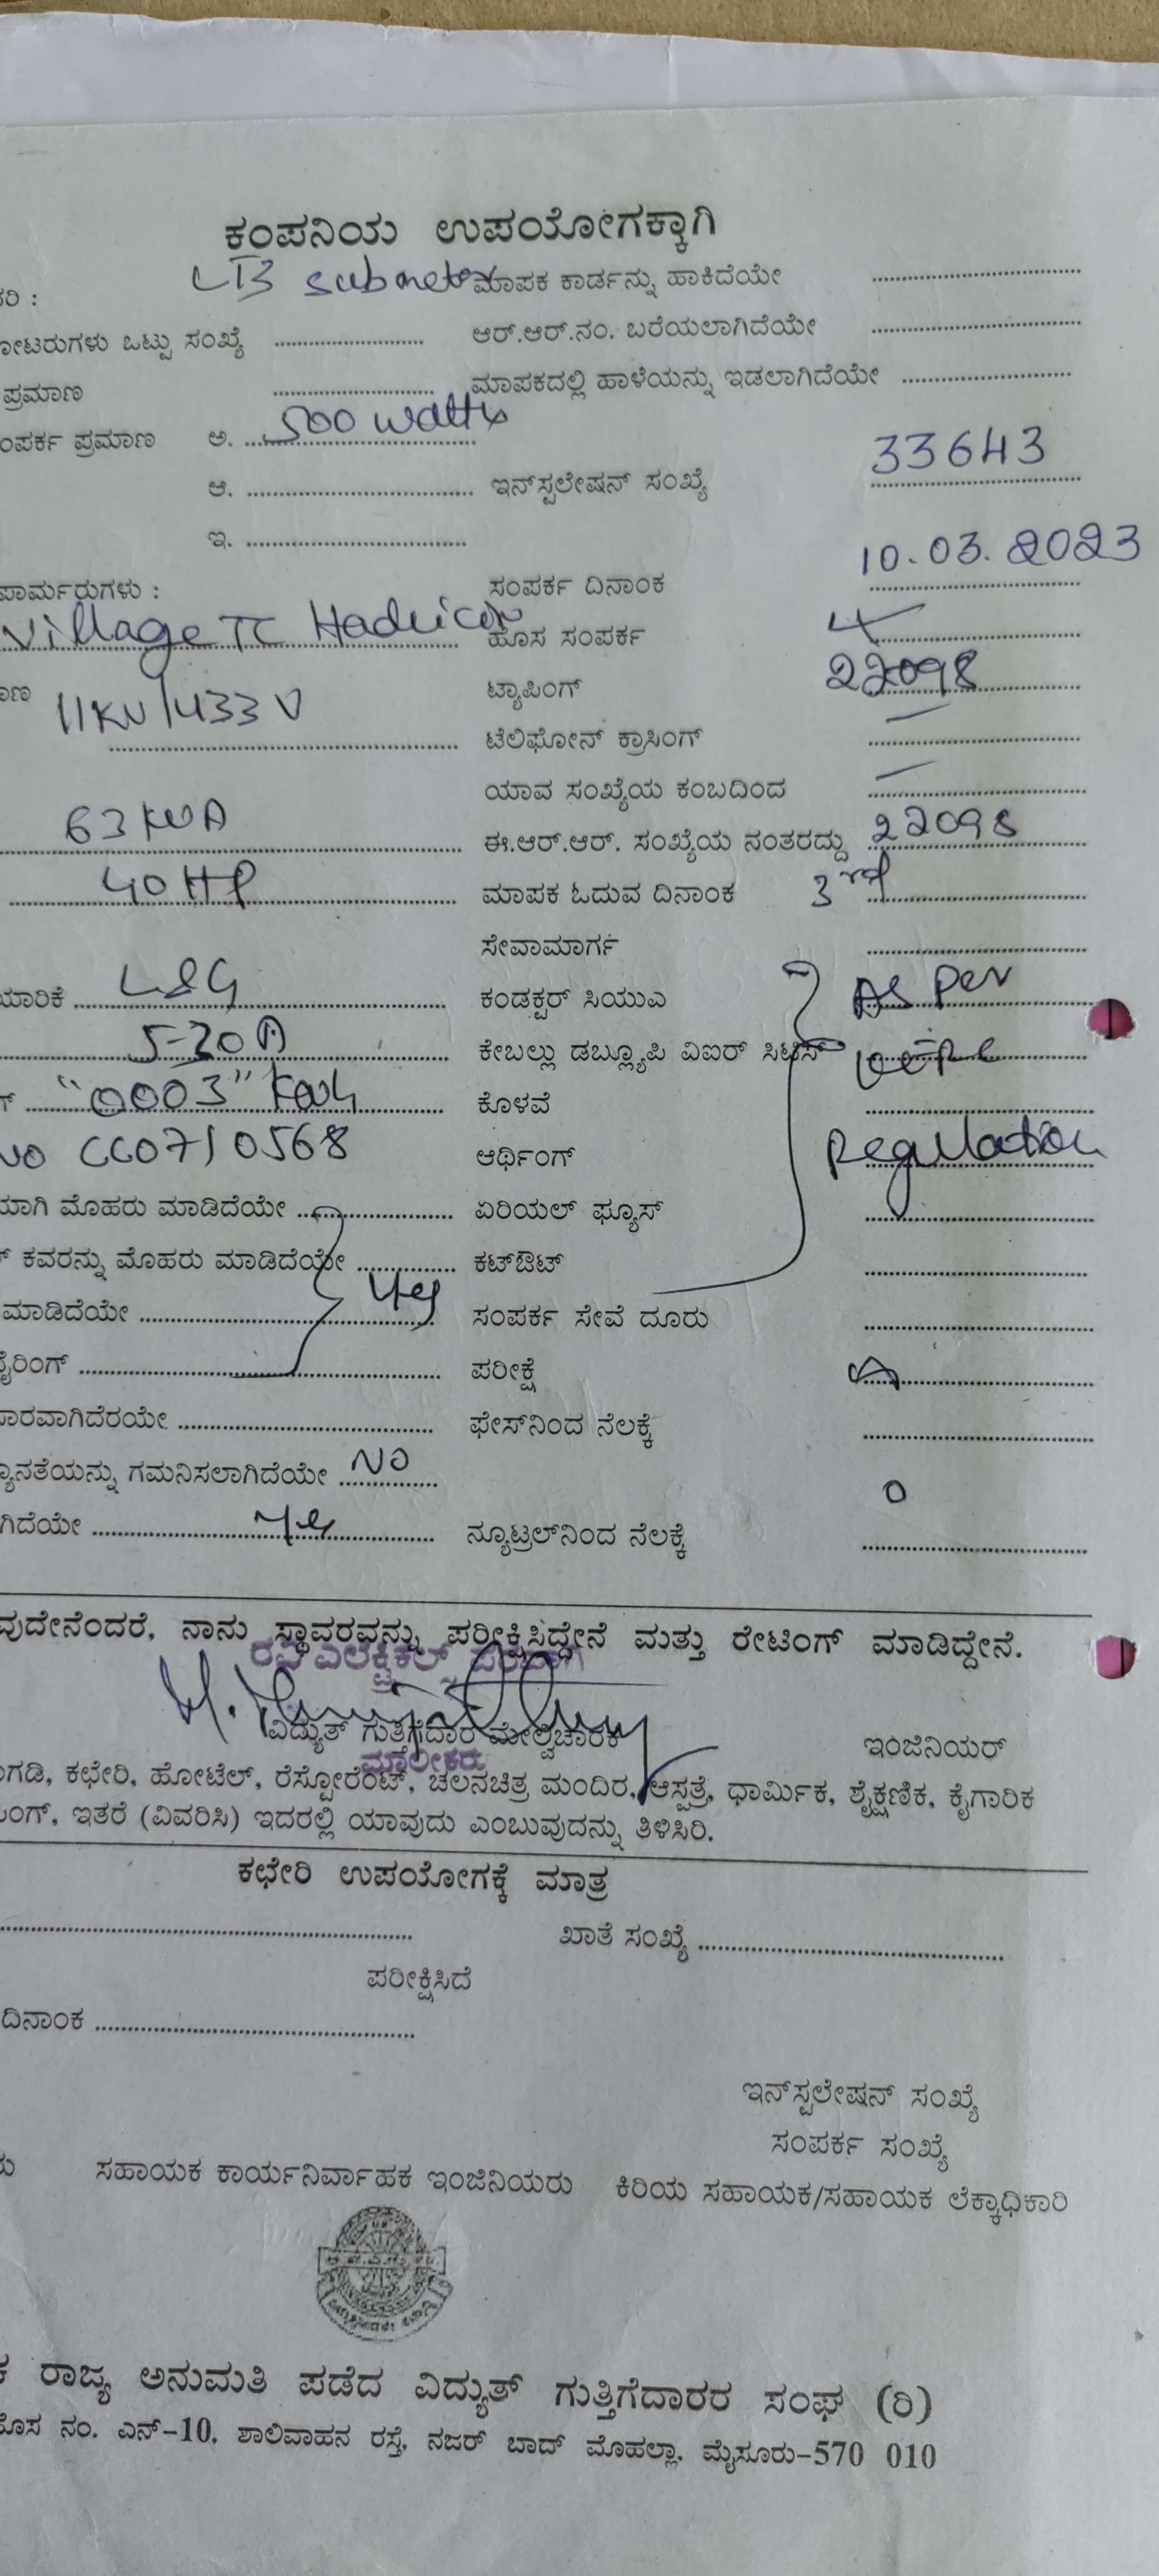 ಕಂಪನಿಯ ಉಪಯೋಗಕ್ಕಾಗಿ
LT3 submeter ಮಾಪಕ ಕಾರ್ಡನ್ನು ಹಾಕಿದೆಯೇ
ರಿ :
ೋಟರುಗಳು ಒಟ್ಟು ಸಂಖ್ಯೆ ಆರ್.ಆರ್.ನಂ. ಬರೆಯಲಾಗಿದೆಯೇ
ಪ್ರಮಾಣ ಮಾಪಕದಲ್ಲಿ ಹಾಳೆಯನ್ನು ಇಡಲಾಗಿದೆಯೇ
ಂಪರ್ಕ ಪ್ರಮಾಣ ಅ. 500 watts
ಆ. ಇನ್‌ಸ್ಪಲೇಷನ್ ಸಂಖ್ಯೆ 33643
ಇ.
ಪಾರ್ಮರುಗಳು : ಸಂಪರ್ಕ ದಿನಾಂಕ 10.03.2023
Village TC ಹೊಸ ಸಂಪರ್ಕ
ಾಣ 11KV/433V ಟ್ಯಾಪಿಂಗ್ 22098
ಟೆಲಿಫೋನ್ ಕ್ರಾಸಿಂಗ್ —
ಯಾವ ಸಂಖ್ಯೆಯ ಕಂಬದಿಂದ —
63 KVA ಈ.ಆರ್.ಆರ್. ಸಂಖ್ಯೆಯ ನಂತರದ್ದು 22098
40 HP ಮಾಪಕ ಓದುವ ದಿನಾಂಕ 3rd
ಸೇವಾಮಾರ್ಗ
ಯಾರಿಕೆ L&G ಕಂಡಕ್ಟರ್ ಸಿಯುಎ As per
5-30A ಕೇಬಲ್ಲು ಡಬ್ಲ್ಯೂಪಿ ವಿಐರ್ ಸಿಟಿಸ್
"0003" Kwh ಕೊಳವೆ
NO CC071 0568 ಆರ್ಥಿಂಗ್ Regulation
ಯಾಗಿ ಮೊಹರು ಮಾಡಿದೆಯೇ ಏರಿಯಲ್ ಫ್ಯೂಸ್
ಕವರನ್ನು ಮೊಹರು ಮಾಡಿದೆಯೇ ಕಟ್‌ಔಟ್
ಮಾಡಿದೆಯೇ ಸಂಪರ್ಕ ಸೇವೆ ದೂರು
ೈರಿಂಗ್ ಪರೀಕ್ಷೆ
ಾರವಾಗಿದೆರಯೇ ಫೇಸ್‌ನಿಂದ ನೆಲಕ್ಕೆ
್ಯೂನತೆಯನ್ನು ಗಮನಿಸಲಾಗಿದೆಯೇ NO
ಗಿದೆಯೇ ನ್ಯೂಟ್ರಲ್‌ನಿಂದ ನೆಲಕ್ಕೆ
ವುದೇನೆಂದರೆ, ನಾನು ಸ್ಥಾವರವನ್ನು ಪರೀಕ್ಷಿಸಿದ್ದೇನೆ ಮತ್ತು ರೇಟಿಂಗ್ ಮಾಡಿದ್ದೇನೆ.
ವಿದ್ಯುತ್ ಗುತ್ತಿಗೆದಾರ ಮೇಲ್ವಿಚಾರಕ ಇಂಜಿನಿಯರ್
ಮಾಲೀಕರು
ಂಗಡಿ, ಕಛೇರಿ, ಹೋಟೆಲ್, ರೆಸ್ಟೋರೆಂಟ್, ಚಲನಚಿತ್ರ ಮಂದಿರ, ಆಸ್ಪತ್ರೆ, ಧಾರ್ಮಿಕ, ಶೈಕ್ಷಣಿಕ, ಕೈಗಾರಿಕ
ಂಗ್, ಇತರೆ (ವಿವರಿಸಿ) ಇದರಲ್ಲಿ ಯಾವುದು ಎಂಬುವುದನ್ನು ತಿಳಿಸಿರಿ.
ಕಛೇರಿ ಉಪಯೋಗಕ್ಕೆ ಮಾತ್ರ
ಖಾತೆ ಸಂಖ್ಯೆ
ಪರೀಕ್ಷಿಸಿದೆ
ದಿನಾಂಕ
ಇನ್‌ಸ್ಪಲೇಷನ್ ಸಂಖ್ಯೆ
ಸಂಪರ್ಕ ಸಂಖ್ಯೆ
ರು ಸಹಾಯಕ ಕಾರ್ಯನಿರ್ವಾಹಕ ಇಂಜಿನಿಯರು ಕಿರಿಯ ಸಹಾಯಕ/ಸಹಾಯಕ ಲೆಕ್ಕಾಧಿಕಾರಿ
ಕ ರಾಜ್ಯ ಅನುಮತಿ ಪಡೆದ ವಿದ್ಯುತ್ ಗುತ್ತಿಗೆದಾರರ ಸಂಘ (ರಿ)
ೊಸ ನಂ. ಎನ್-10, ಶಾಲಿವಾಹನ ರಸ್ತೆ, ನಜರ್ ಬಾದ್ ಮೊಹಲ್ಲಾ, ಮೈಸೂರು-570 010